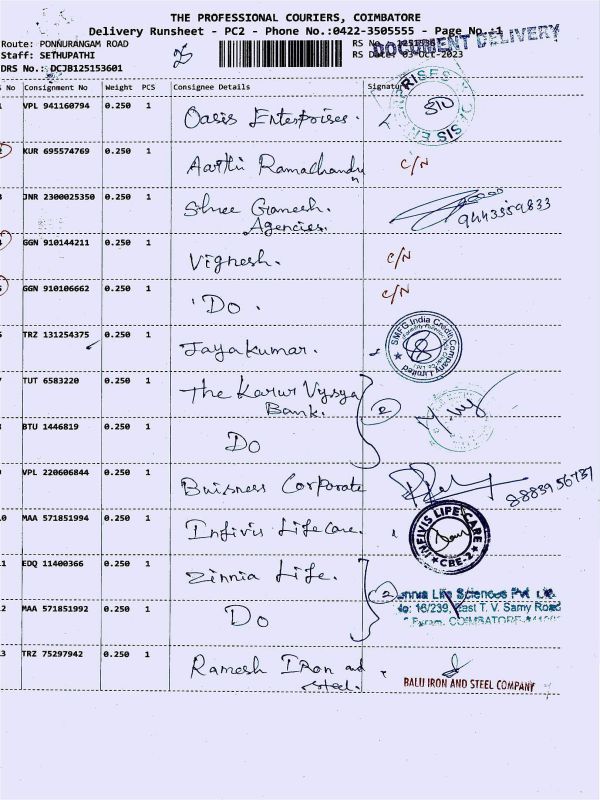 THE PROFESSIONAL COURIERS, COIMBATORE
Delivery Runsheet - PC2 - Phone No.:0422-3505555 - Page No.:1
DOCUMENT DELIVERY
Route: PONNURANGAM ROAD RS No.
Staff: SETHUPATHI RS Date: 03-Oct-2023
DRS No.: DCJB125153601
No Consignment No Weight PCS Consignee Details Signature
VPL 941160794 0.250 1 Oasis Enterprises.
KUR 695574769 0.250 1 Aarthi Ramachandran C/N
JNR 2300025350 0.250 1 Shree Ganesh. Agencies. 9443559833
GGN 910144211 0.250 1 Vignesh. C/N
GGN 910106662 0.250 1 "Do. C/N
TRZ 131254375 0.250 1 Jayakumar. SMFG India Credit Company Limited
TUT 6583220 0.250 1 The Karur Vysya Bank. 2
BTU 1446819 0.250 1 Do
VPL 220606844 0.250 1 Buisness Corporate 8883956737
MAA 571851994 0.250 1 Infivis Life Care. INFIVIS LIFE CARE CBE-2
EDQ 11400366 0.250 1 Zinnia Life. 2 Life Sciences Pvt. Ltd.
MAA 571851992 0.250 1 Do No: 16/239, East T. V. Samy Road
COIMBATORE
TRZ 75297942 0.250 1 Ramesh Iron and steel. BALU IRON AND STEEL COMPANY